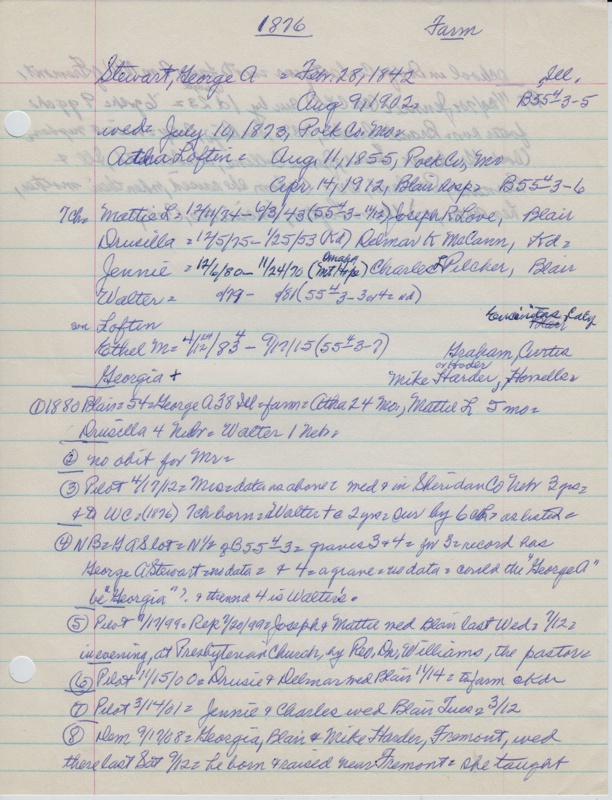 1876 Farm
Stewart, George A = Feb. 28, 1842 Ill.
Aug 9, 1902 = B55⁴3-5
wed = July 10, 1873, Polk Co, Mo =
Actha Loftin = Aug, 11, 1855, Polk Co, Mo
Apr. 14, 1912, Blair Hosp = B55⁴3-6
7 Ch = Mattie L = - 6/3/43 (55⁴3-1) Joseph R Love, Blair
Drusilla = 12/5/75 - 1/25/53 (Kd) Delmar K McCann, Kd =
Jennie = 12/6/80 - 11/24/70 (Omaha Mt Hope) Charles Pilcher, Blair
Walter = 1/79 - 1/81 (55⁴3-3 or 4 = nd)
Loftin Encinitas, Caly
Ethel M = 83 - 9/17/15 (55⁴3-7) Graham, Curtis
Georgia + Mike Harder, or Hoder
① 1880 Blair = 54 = George A 38 Ill = farm = Actha 24 Mo, Mattie L 5 mo =
Drusilla 4 Nebr = Walter 1 Nebr =
② no obit for Mr =
③ Pilot 4/17/12 = Mrs = data as above & med + in Sheridan Co Nebr 3 yrs =
WC = (1876) 7 ch born = Walter + @ 2 yrs = Sur by 6 ch = as listed =
④ NB = GA S lot = N½ of B55⁴3 = graves 3 & 4 = for 3 = record has
George A Stewart = no data = & 4 = a grave = no data = could the "George A"
be "Georgia"? & then 4 is Walter's =
⑤ Pilot 7/17/99 = Rep 7/20/99 = Joseph & Mattie wed Blair last Wed = 7/12 =
in evening, at Presbyterian Church, by Rev. Dr. Williams, the pastor =
⑥ Pilot 11/15/00 = Drusie & Delmar wed Blair 11/14 = to farm @ Kd
⑦ Pilot 3/14/01 = Jennie & Charles wed Blair Tues = 3/12
⑧ Dem 9/17/08 = Georgia, Blair & Mike Harder, Fremont, wed
there last Sat 9/12 = he born & raised near Fremont = she taught